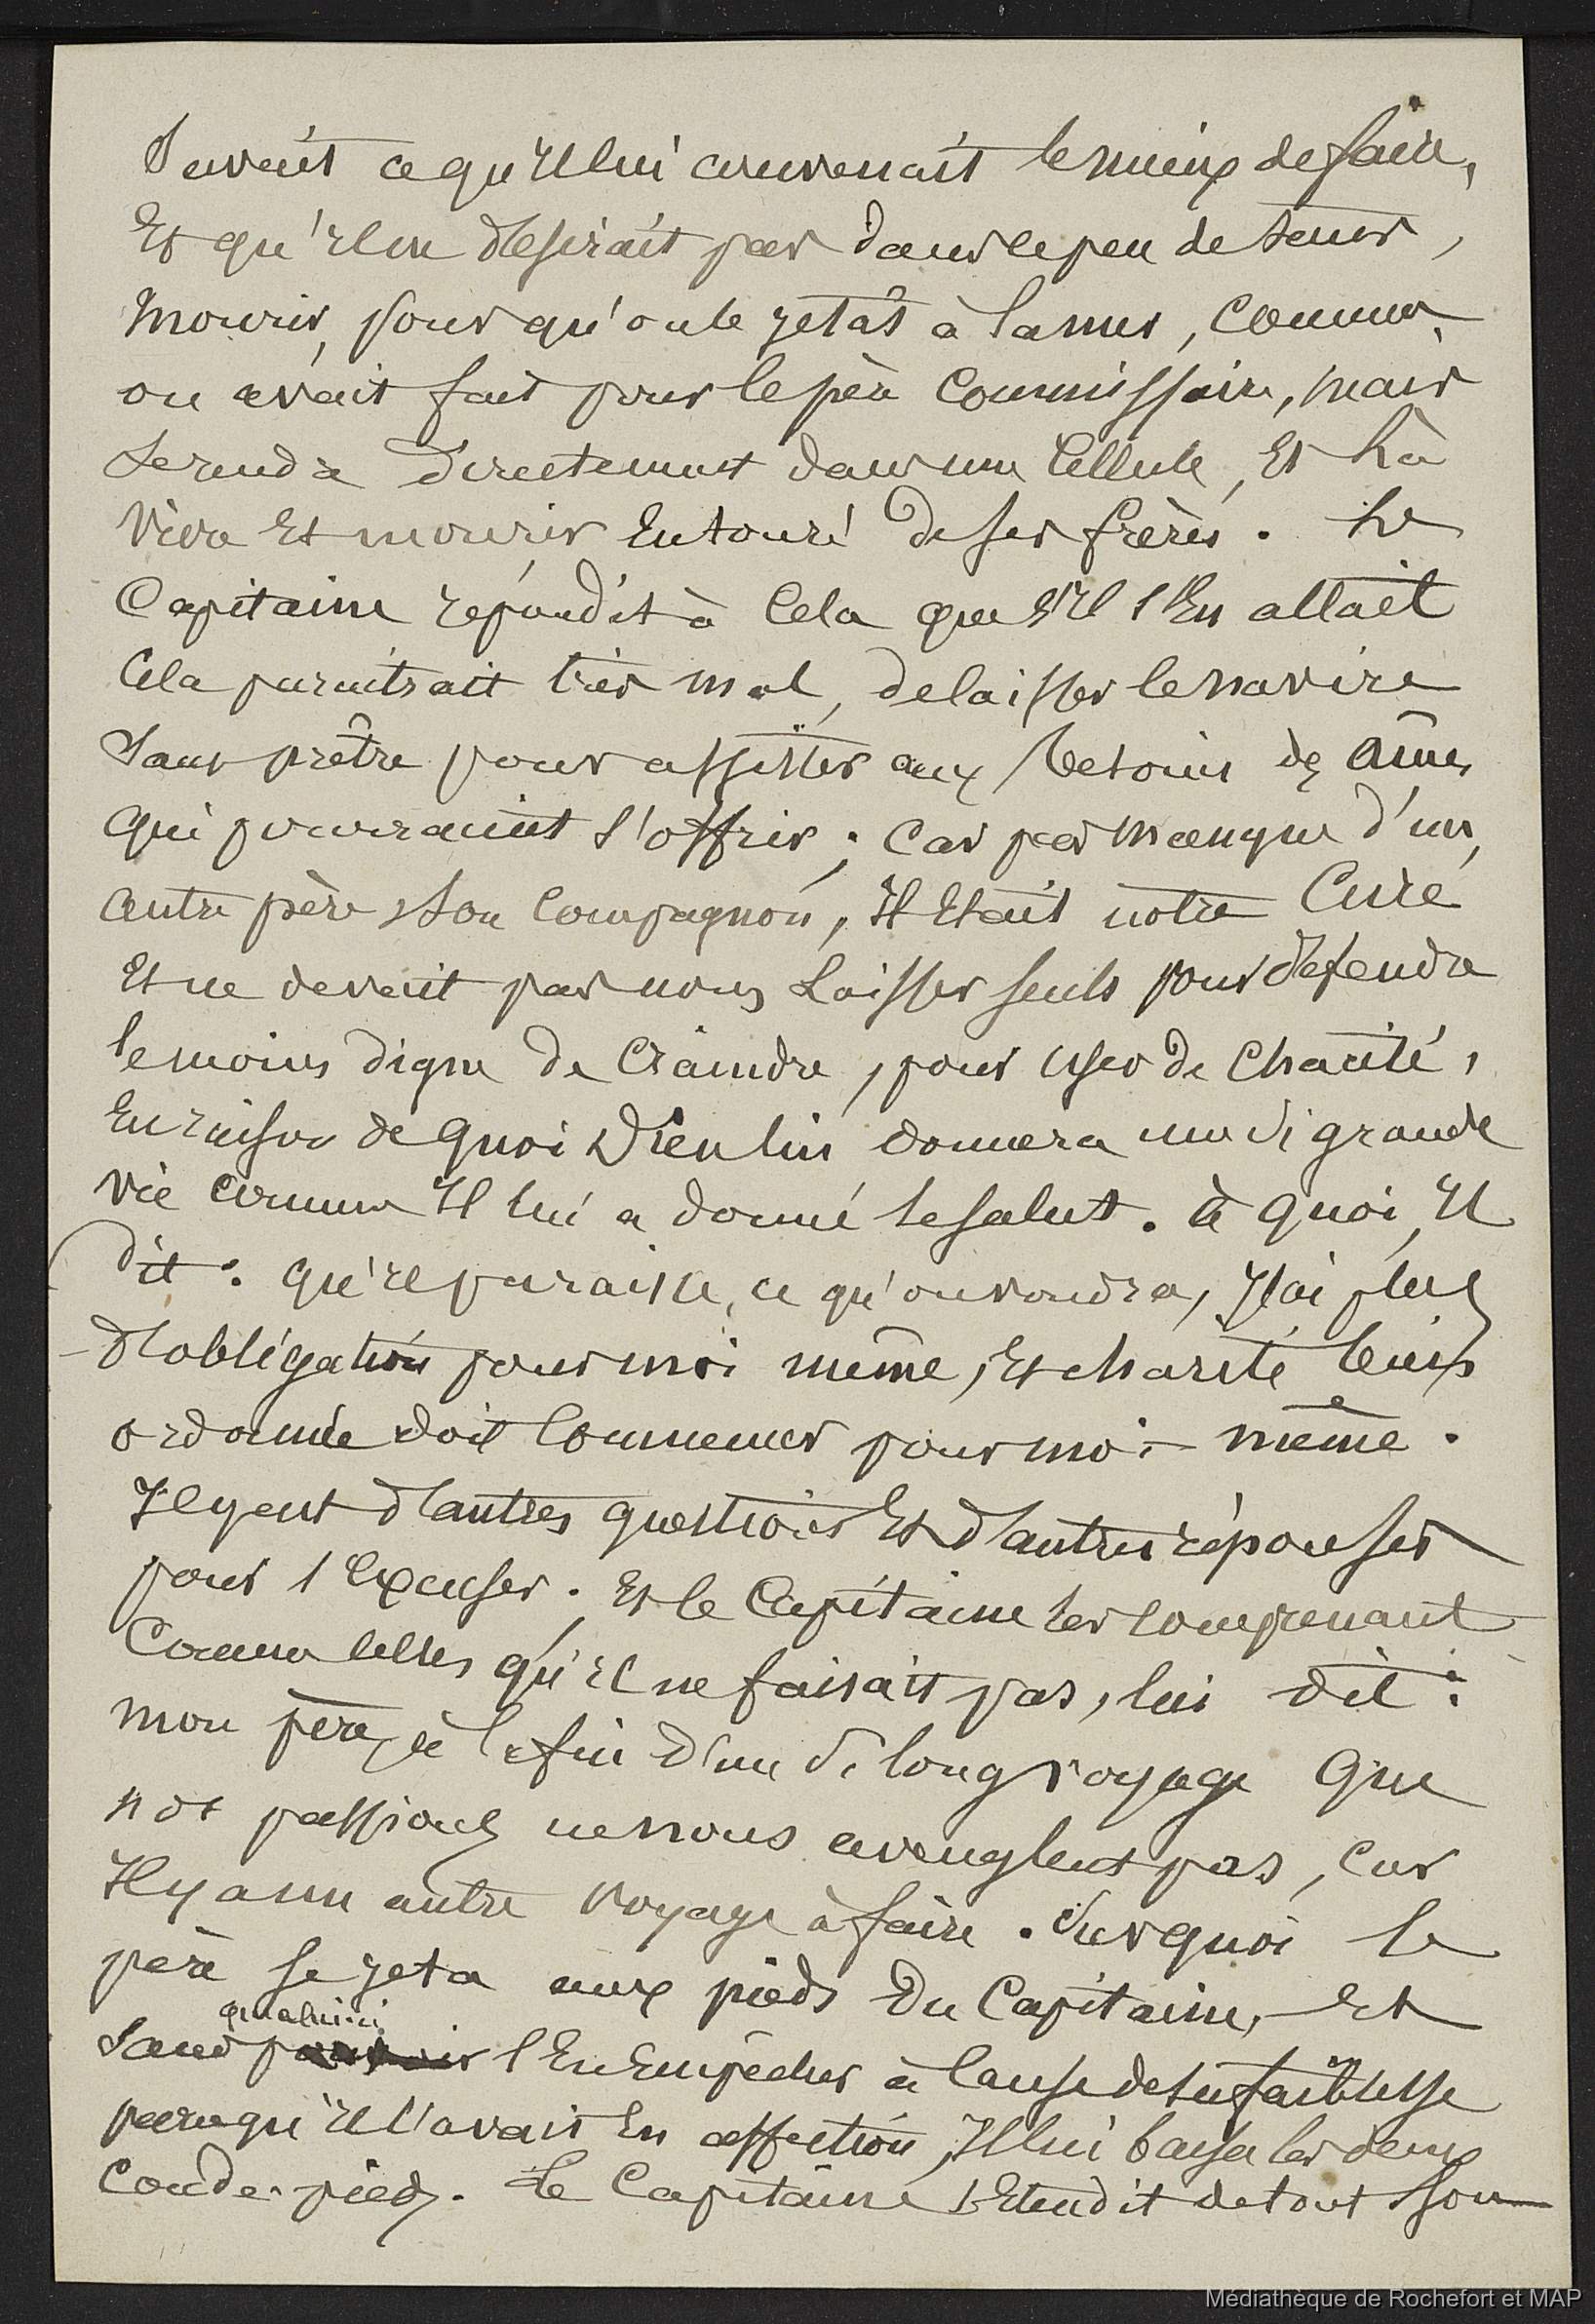 Savait ce qu'il lui convenait le mieux de faire,
Et qu'il ne désirait pas dans le peu de tems,
Mourir, pour qu'on le jetât à la mer, comme
on avait fait pour le père Commissaire, mais
se rendre directement dans une Cellule, Et là
Vivre Et mourir Entouré de ses frères. Le
Capitaine répondit à Cela que s'Il s'En allait
Cela paraitrait très mal, de laisser le navire
Sans prêtre pour assister aux besoins des âmes
qui pourraient s'offrir; Car par manque d'un
autre père, son Compagnon, Il Etait notre Curé
Et ne devait pas nous Laisser seuls pour défendre
le moins digne de Craindre, pour user de Charité,
En raison de quoi Dieu lui donnera une si grande
vie comme Il lui a donné le salut. à quoi, Il
dit: qu'il paraisse, ce qu'on voudra, J'ai plus
d'obligation pour moi même, Et charité bien
ordonnée doit Commencer pour moi-même.
Il y eut d'autres questions Et d'autres réponses
pour s'Excuser. Et le Capitaine les Comprenant
Comme Celles qu'il ne faisait pas, lui dit:
Mon père, à la fin d'un si long voyage Que
nos passions ne nous aveuglent pas, Car
Il y a un autre Voyage à faire. Sur quoi le
père se jeta aux pieds Du Capitaine, Et
Sans que celui-ci l'En Empêcher à Cause de sa faiblesse
parce qu'Il l'avait En affection, Il lui baisa les deux
Coude-pieds. Le Capitaine s'Etendit de tout Son